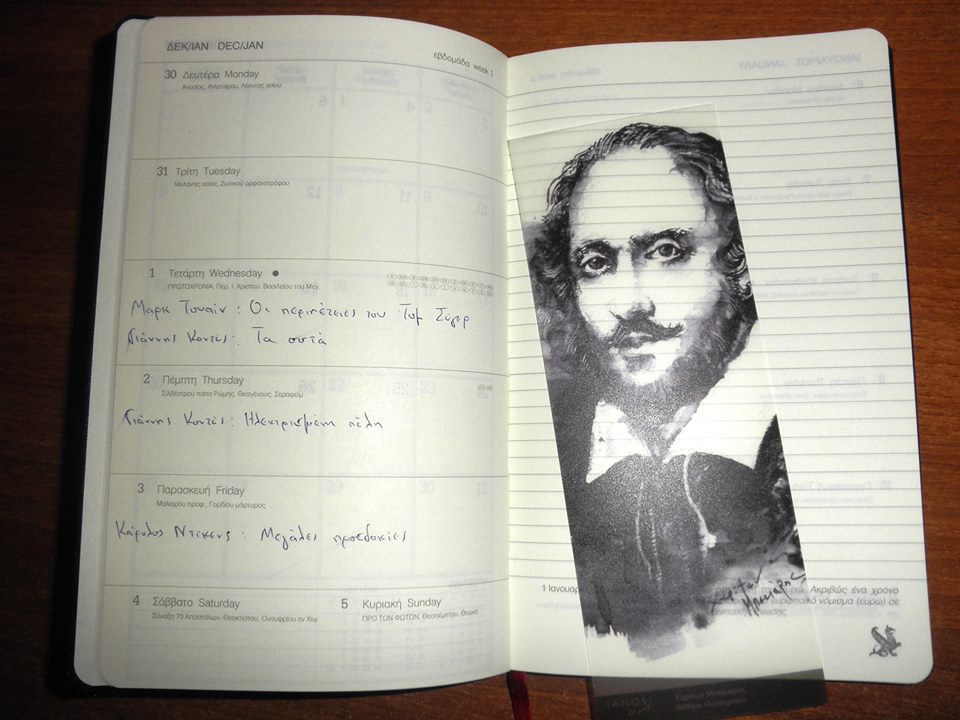 ΔΕΚ/ΙΑΝ DEC/JAN
εβδομάδα week 1
30 Δευτέρα Monday
Ανυσίας, Φιλεταίρου, Λέοντος οσίου
31 Τρίτη Tuesday
Μελάνης οσίας, Ζωτικού ορφανοτρόφου
1 Τετάρτη Wednesday
ΠΡΩΤΟΧΡΟΝΙΑ. Περ. Ι. Χριστού. Βασιλείου του Μεγ.
Μαρκ Τουαίν: Οι περιπέτειες του Τομ Σώγερ
Γιάννης Κοντός: Τα οστά
2 Πέμπτη Thursday
Σιλβέστρου πάπα Ρώμης, Θεαγένους, Σεραφείμ
Γιάννης Κοντός: Ηλεκτρισμένη πόλη
3 Παρασκευή Friday
Μαλαχίου προφ., Γορδίου μάρτυρος
Κάρολος Ντίκενς: Μεγάλες προσδοκίες
4 Σάββατο Saturday
Σύναξη 70 Αποστόλων, Θεοκτίστου, Ονουφρίου εν Χίω
5 Κυριακή Sunday
ΠΡΟ ΤΩΝ ΦΩΤΩΝ. Θεοπέμπτου, Θεωνά
1 Ιανουαρ
Ακριβώς ένα χρόνο
ευρωπαϊκό νόμισμα (ευρώ) σε
IANOS